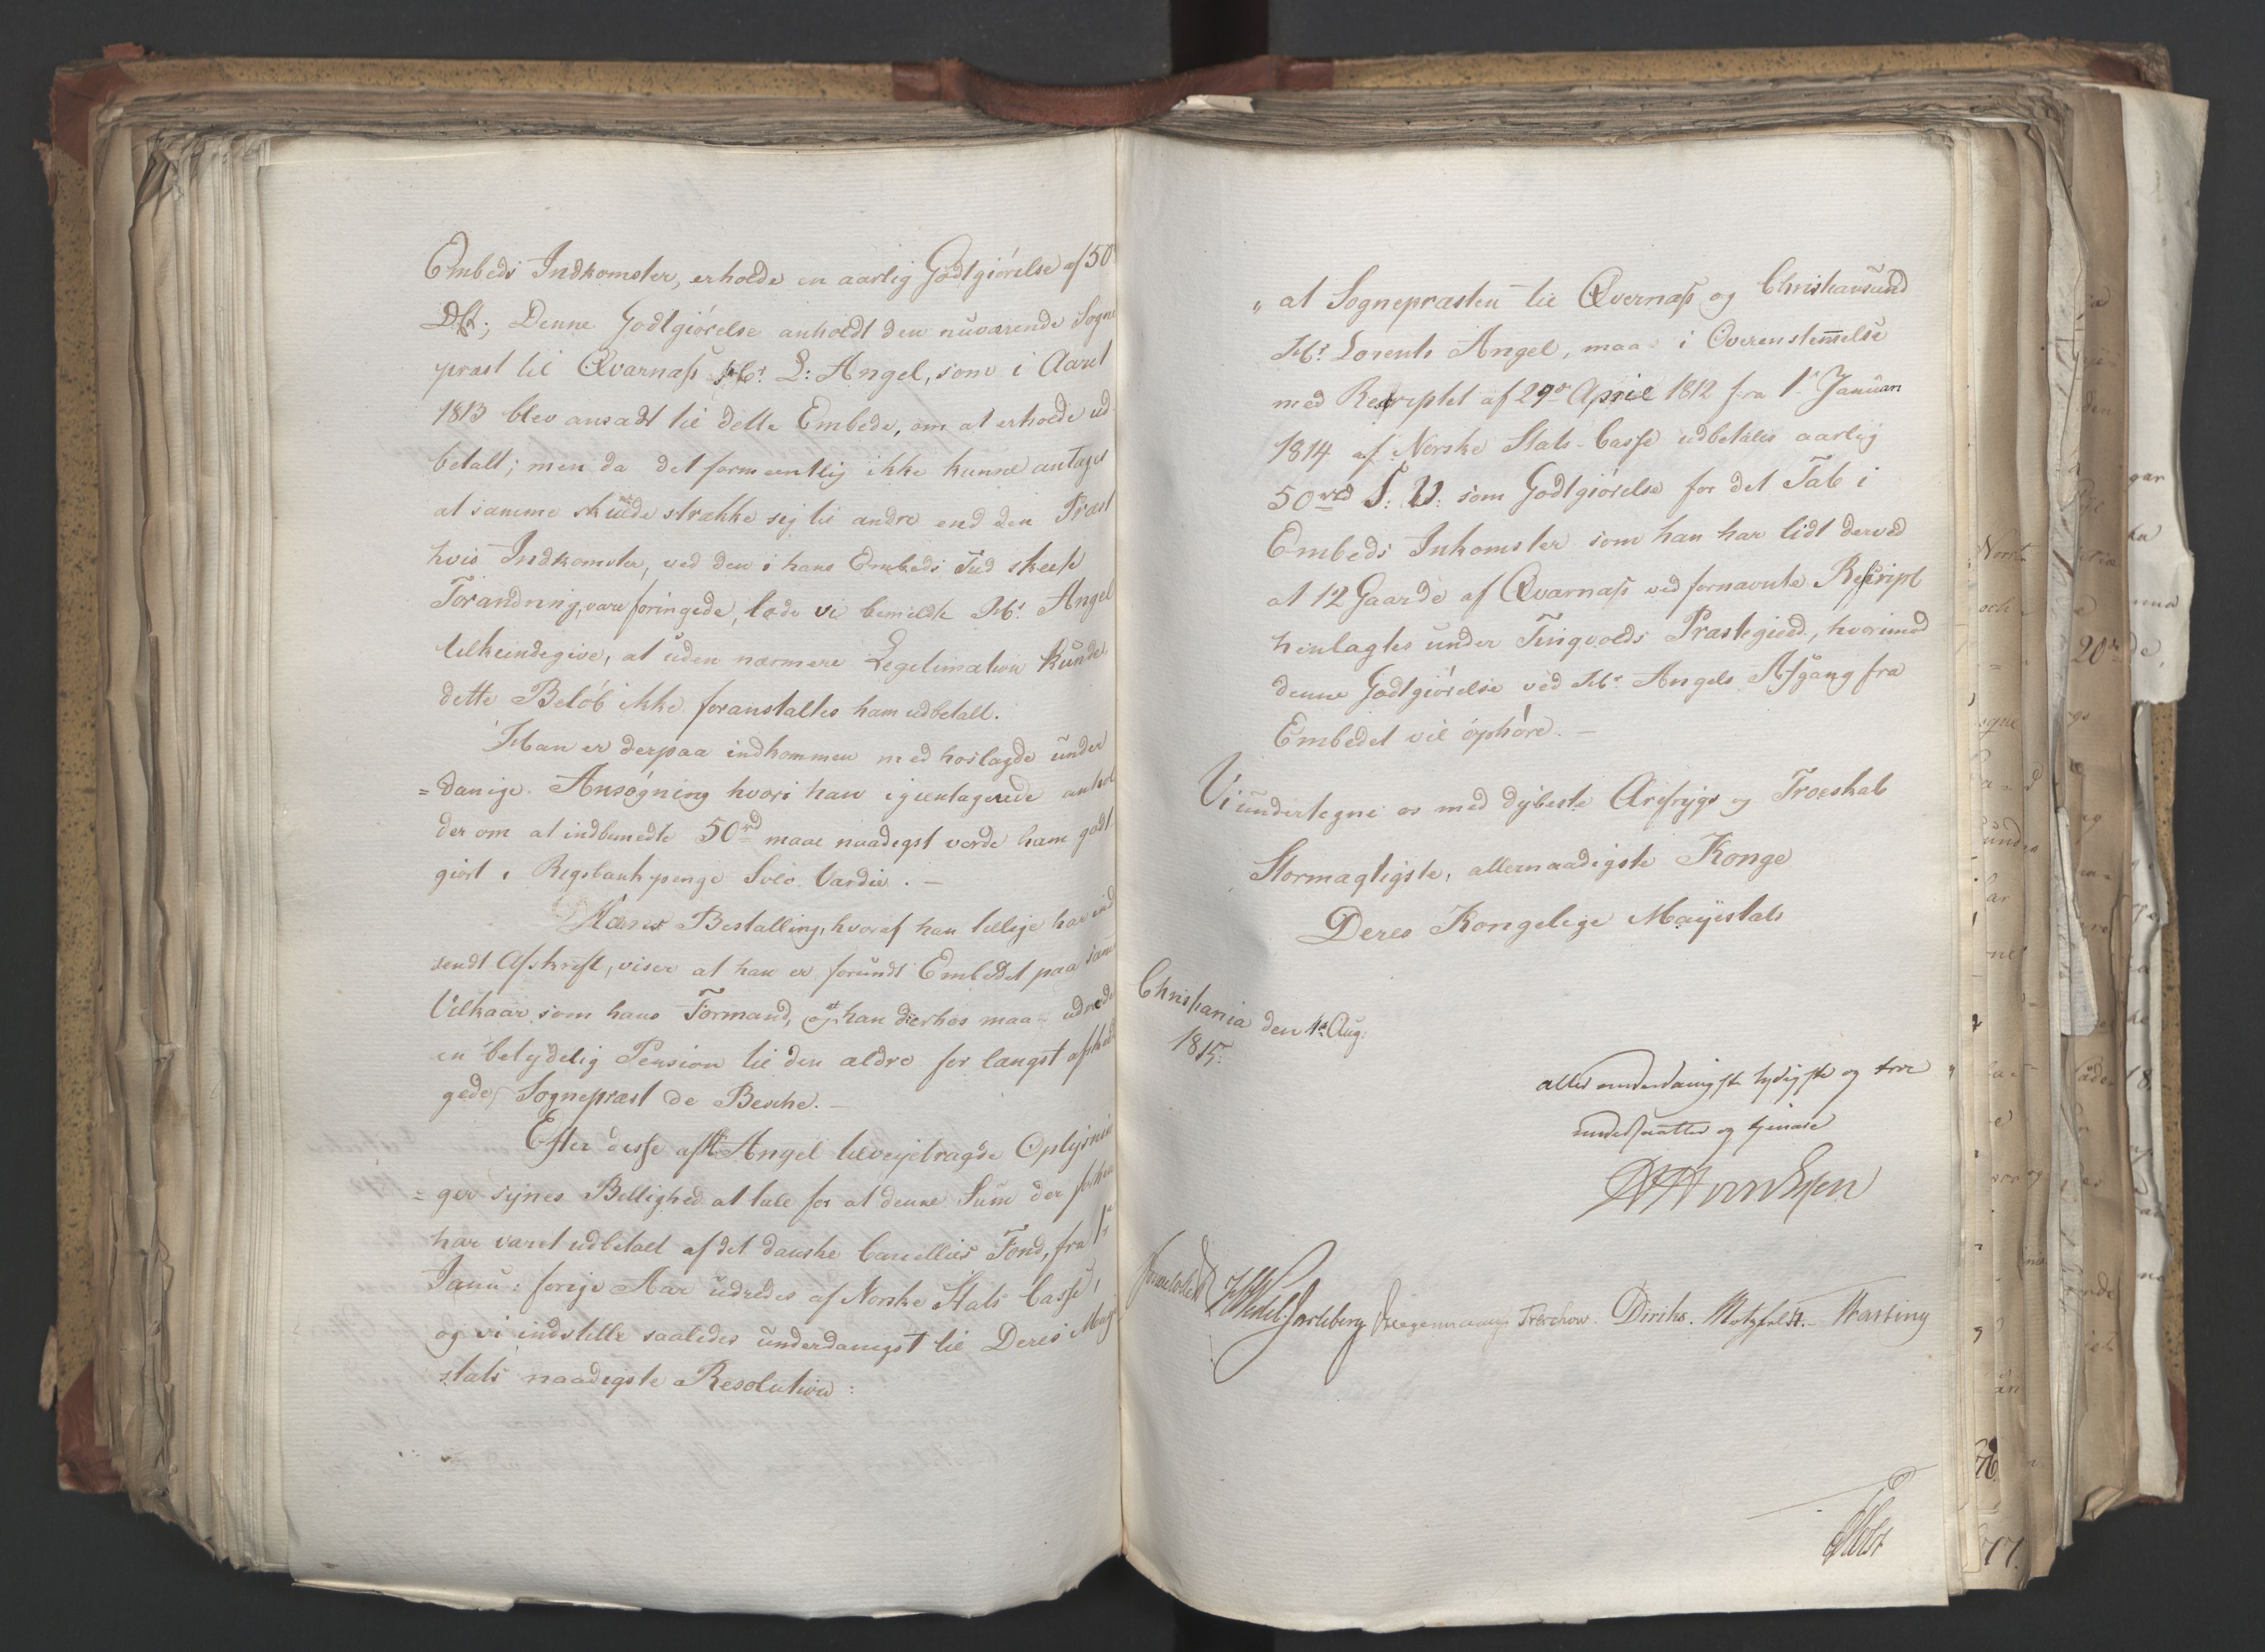 Embeds Indkomster, erholde en aarlig Godtgiörelse af 50
Denne Godtgiörelse anholdt den nuværende Sogne
præst til Qvarnæss Hr. L: Angel, som i Aaret
1813 blev ansadt til dette Embede, om at erholde ud
betalt; men da det formeentlig ikke kunde antages
at samme skulde strække sig til andre end den Præst
hvis Indkomster, ved den i hans Embeds Tiid skeete
Forandring, vare foringede, lode vi bemeldte Hr. Angel
tilkiendegive, at uden nærmere Legitimation kunde
dette Belöb ikke foranstaltes ham udbetalt.
Han er derpaa indkommen med hoslagde under
=danige Ansögning hvori han igientagende anhol
der om at indbemedte 50 rd maae naadigst vorde ham godt
giört i Rigsbankpenge Sölv Værdie. —
Hans Bestalling, hvoraf han tillige har ind
sendt Afskrift, viser at han er forundt Embedet paa samme
Vilkaar som hans Formand, og at han derhos maae udrede
en betydelig Pension til den ældre for langst afskedi
gede Sognepræst de Besche. —
Efter disse af Hr Angel tilveyebragde Oplysnin
=ger synes Billighed at tale for at denne Sum der forhen
har været udbetalt af det danske Cancellies Fond, fra 1te
Janu: forige Aar udredes af Norske Stats Casse,
og vi indstille saaledes underdanigst til Deres Maje
stæts naadigste Resolution:
„ at Sognepræsten til Qvernæss og Christiansund
Hr. Lorentz Angel, maae i Overenstemmelse
med Rescriptet af 29de April 1812 fra 1te Januari
1814 af Norske Stats-Casse udbetales aarlig
50 rd S: V: som Godtgiörelse for det Tab i
Embeds Inkomster som han har lidt derved
at 12 Gaarde af Qvarnæss ved fornævnte Rescript
henlagtes under Tingvolds Præstegield, hvorimod
denne Godtgiörelse ved Hr. Angels Afgang fra
Embedet vil ophöre. —
Vi undertegne os med dybeste Ærefrygt og Troeskab
Stormægtigste, allernaadigste Konge
Deres Kongelige Mayestæts
Christiania den 1te Aug:
1815.
allerunderdanigste lydigste og troe
undersaatter og tienere
foreveldt HWedel Jarlsberg Treschow. Diriks. Motzfeldt. Hassing
Holst